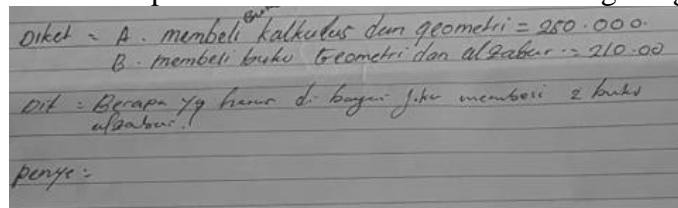 Diket = A. membeli buku kalkulus dan geometri = 250.000.
B. membeli buku Geometri dan alzabar = 210.00
Dit = Berapa yg harus di bayar jika membeli 2 buku
alzabar.!
penye =